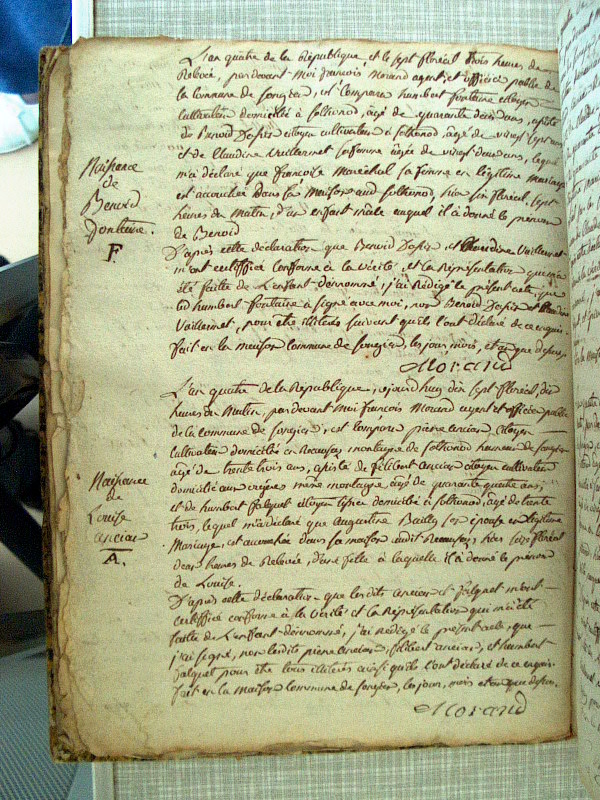 L'an quatre de la République et le sept floréal trois heures de
Relevée, pardevant moi françois Morand agent et officier public de
la commune de Songieu, est comparu humbert fontaine citoyen
cultivateur domicilié à Sothonod, âgé de quarante deux ans, assisté
de Benoid citoyen cultivateur à Sothonod, âgé de vingt sept ans
et de Claudine Vuillermet sa femme âgée de vingt deux ans, lequel
m'a déclaré que françoise Maréchal sa femme en légitime mariage
est accouchée dans sa maison aud Sothonod, hier six floréal, sept
heures du matin, d'un enfant mâle auquel il a donné le prénom
de Benoid
D'après cette déclaration que Benoid et Claudine Vuillermet
m'ont certiffié conforme à la vérité et la Représentation qui m'a
été faite de L'enfant dénommé, j'ai Rédigé le présent acte, que
led humbert fontaine a signé avec moi, non Benoid et Claudine
Vuillermet, pour être illiterés suivant qu'ils l'ont déclaré de ce enquis
fait en la maison commune de Songieu, les jour, mois, et an que dessus
Morand
Naissance
de
Benoid
fontaine.
F.
L'an quatre de la République, aujourd'huy sept floréal, dix
heures du matin, pardevant moi françois Morand agent et officier public
de la commune de Songieu, est comparu pierre ancian citoyen
cultivateur domicilié en montagne de Sothonod hameau de Songieu
âgé de trente trois ans, assisté de félibert ancian citoyen cultivateur
domicilié aux même montagne, âgé de quarante quatre ans,
et de humbert falquet citoyen domicilié à Sothonod, âgé de trente
trois, lequel m'a déclaré que augustine Bailly son épouse en légitime
Mariage, est accouchée dans sa maison audit hier six floréal
deux heures de Relevée, d'une fille à laquelle il a donné le prénom
de Louise.
D'après cette déclaration que lesdits ancian et falquet m'ont
certiffié conforme à la vérité et la Représentation qui m'a été
faite de L'enfant dénommé, j'ai Rédigé le présent acte, que
j'ai signé, non lesdits pierre ancian, félibert ancian, et humbert
falquet pour être tous illiterés ainsi qu'ils l'ont déclaré de ce enquis
fait en la maison commune de Songieu, les jour, mois et an que dessus.
Morand
Naissance
de
Louise
ancian
A.